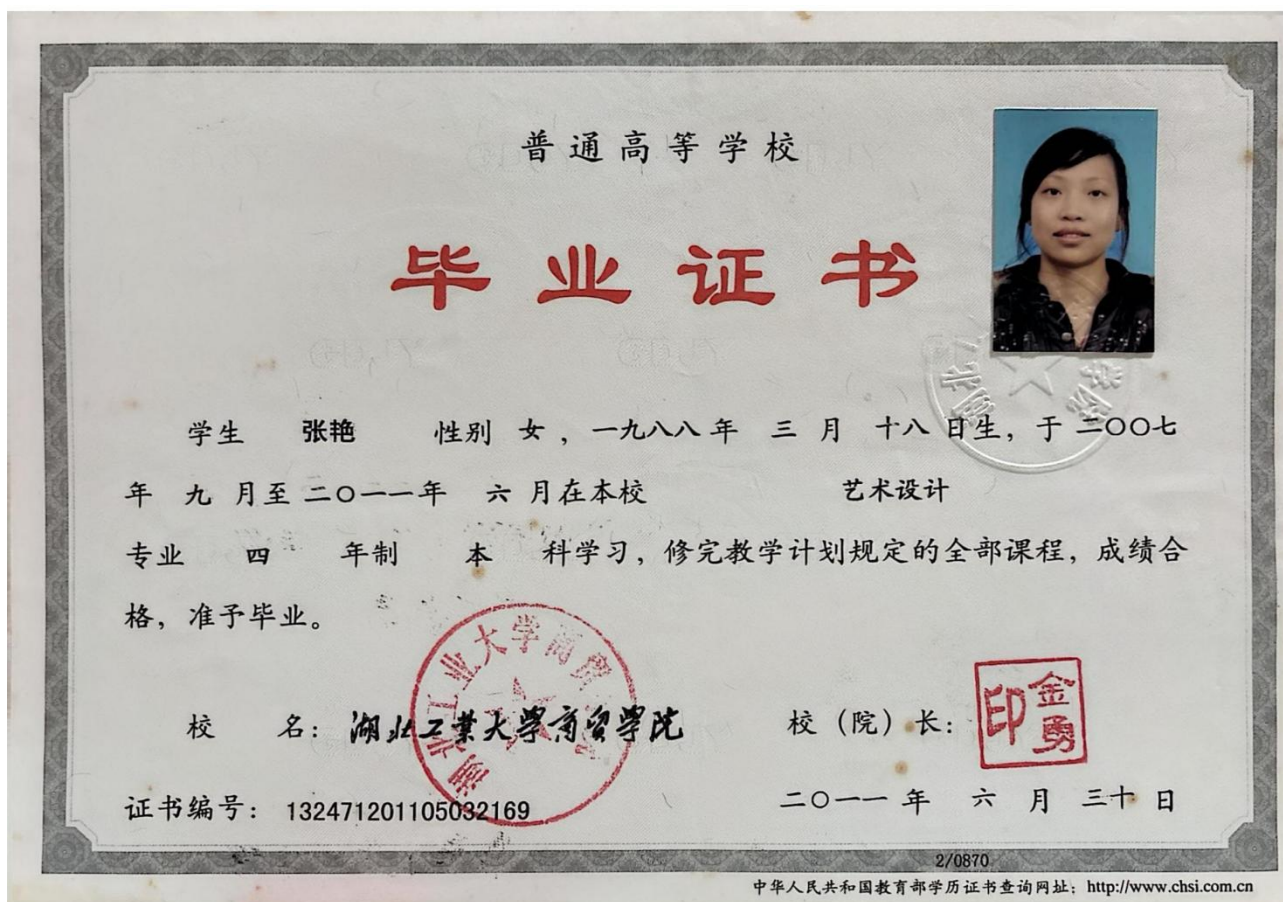 普通高等学校
毕业证书
学生 张艳 性别 女，一九八八年 三 月 十八 日生，于 二〇〇七
年 九 月至 二〇一一年 六 月在本校 艺术设计
专业 四 年制 本 科学习，修完教学计划规定的全部课程，成绩合
格，准予毕业。
湖北工业大学商贸
校 名：湖北工業大學商贸学院
校（院）长：
金勇印
证书编号：132471201105032169
二〇一一 年 六 月 三十 日
2/0870
中华人民共和国教育部学历证书查询网址：http://www.chsi.com.cn